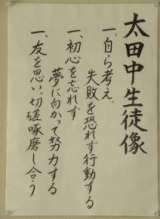 太田中生徒像
一、自ら考え
失敗を恐れず行動する
一、初心を忘れず
夢に向かって努力する
一、友を思い、切磋琢磨し合う